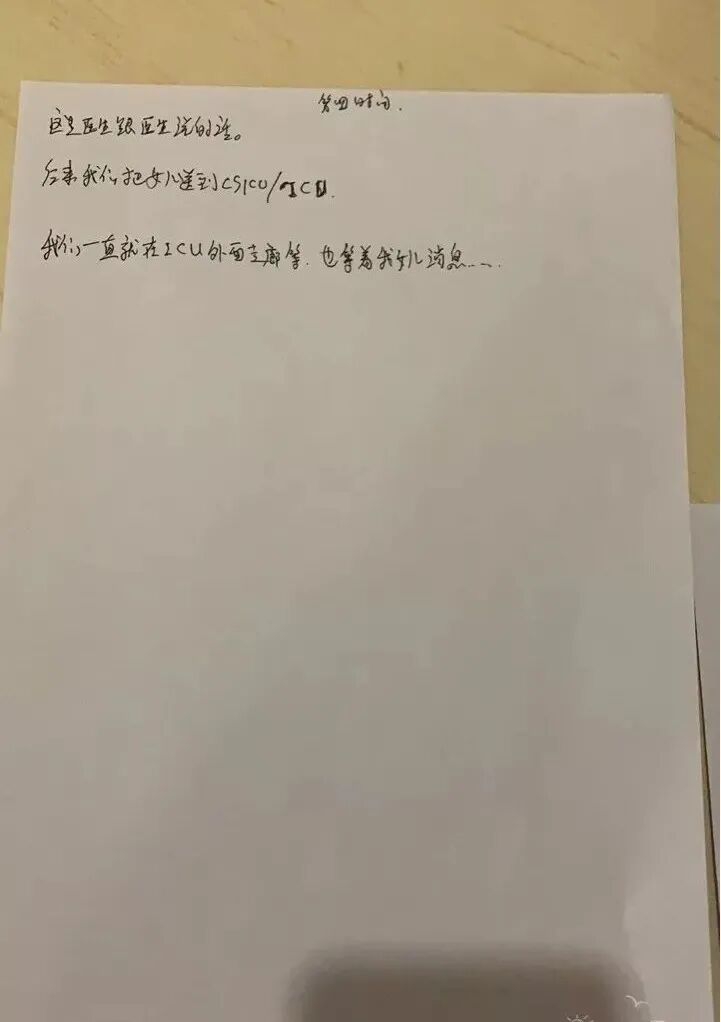 第四时间.
这是医生跟医生说的话。
后来我们把女儿送到CSICU/ICU.
我们一直就在ICU外面走廊等.也等着我女儿消息……